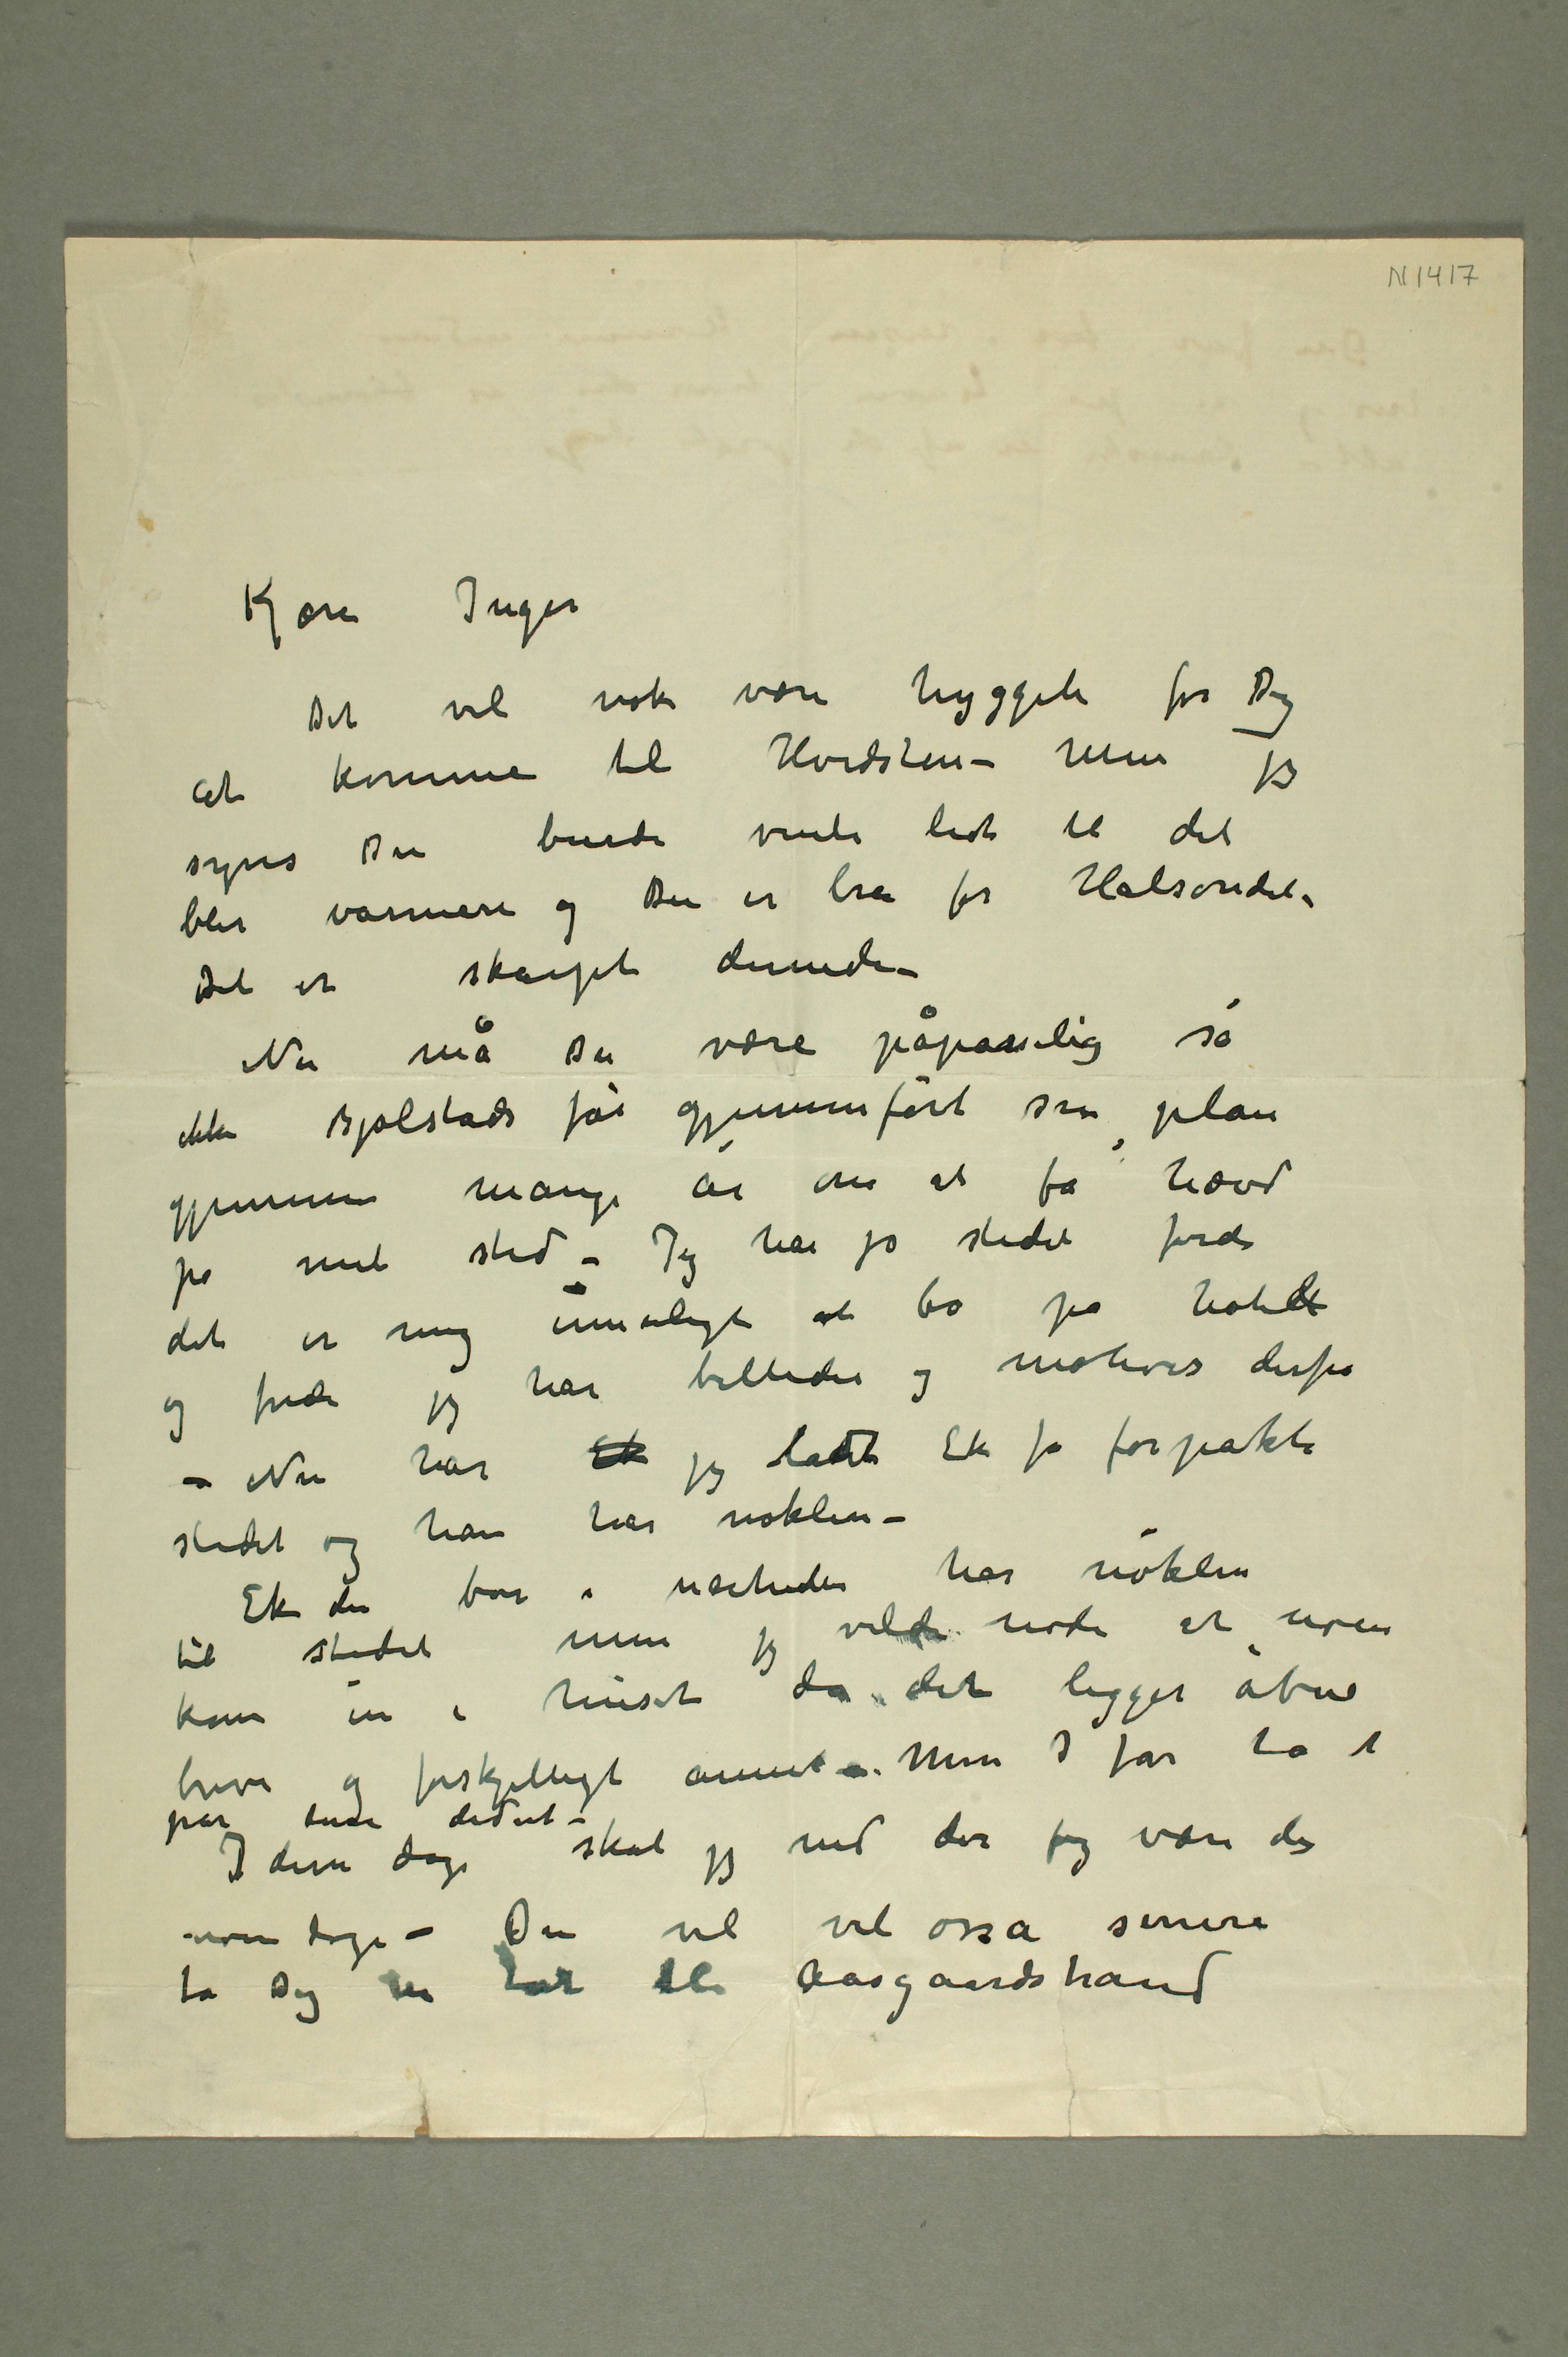 N 1417
Kjære Inger
Det vil nok være hyggeli for Dig
at komme til Hvidsten – men jeg
synes Du burde vente lidt til det
blir varmere og Du er bra for Halsondet.
Det er skarpt dernede –
Nu må Du være påpasselig så
ikke Bjølstads får gjennemført sin plan
gjennem mange år om at få hævd
på mit sted – Jeg har jo stedet fordi
det er mig umuligt at bo på hotell
og fordi jeg har billeder og motiver derfra
– Nu har Ek jeg ladet Ek få forpakte
stedet og han har nøklen –
Ek der bor i nærheden har nøklen
til stedet men jeg vilde nødi at noen
kom in i huset da det ligger åbne
breve og forskjelligt annet –. Men I får ta et
par ture dernede –
I disse dage skal jeg ned der og være der
noen dage – Du vil vel ossa senere
ta Dig en tur til Aasgaardstrand